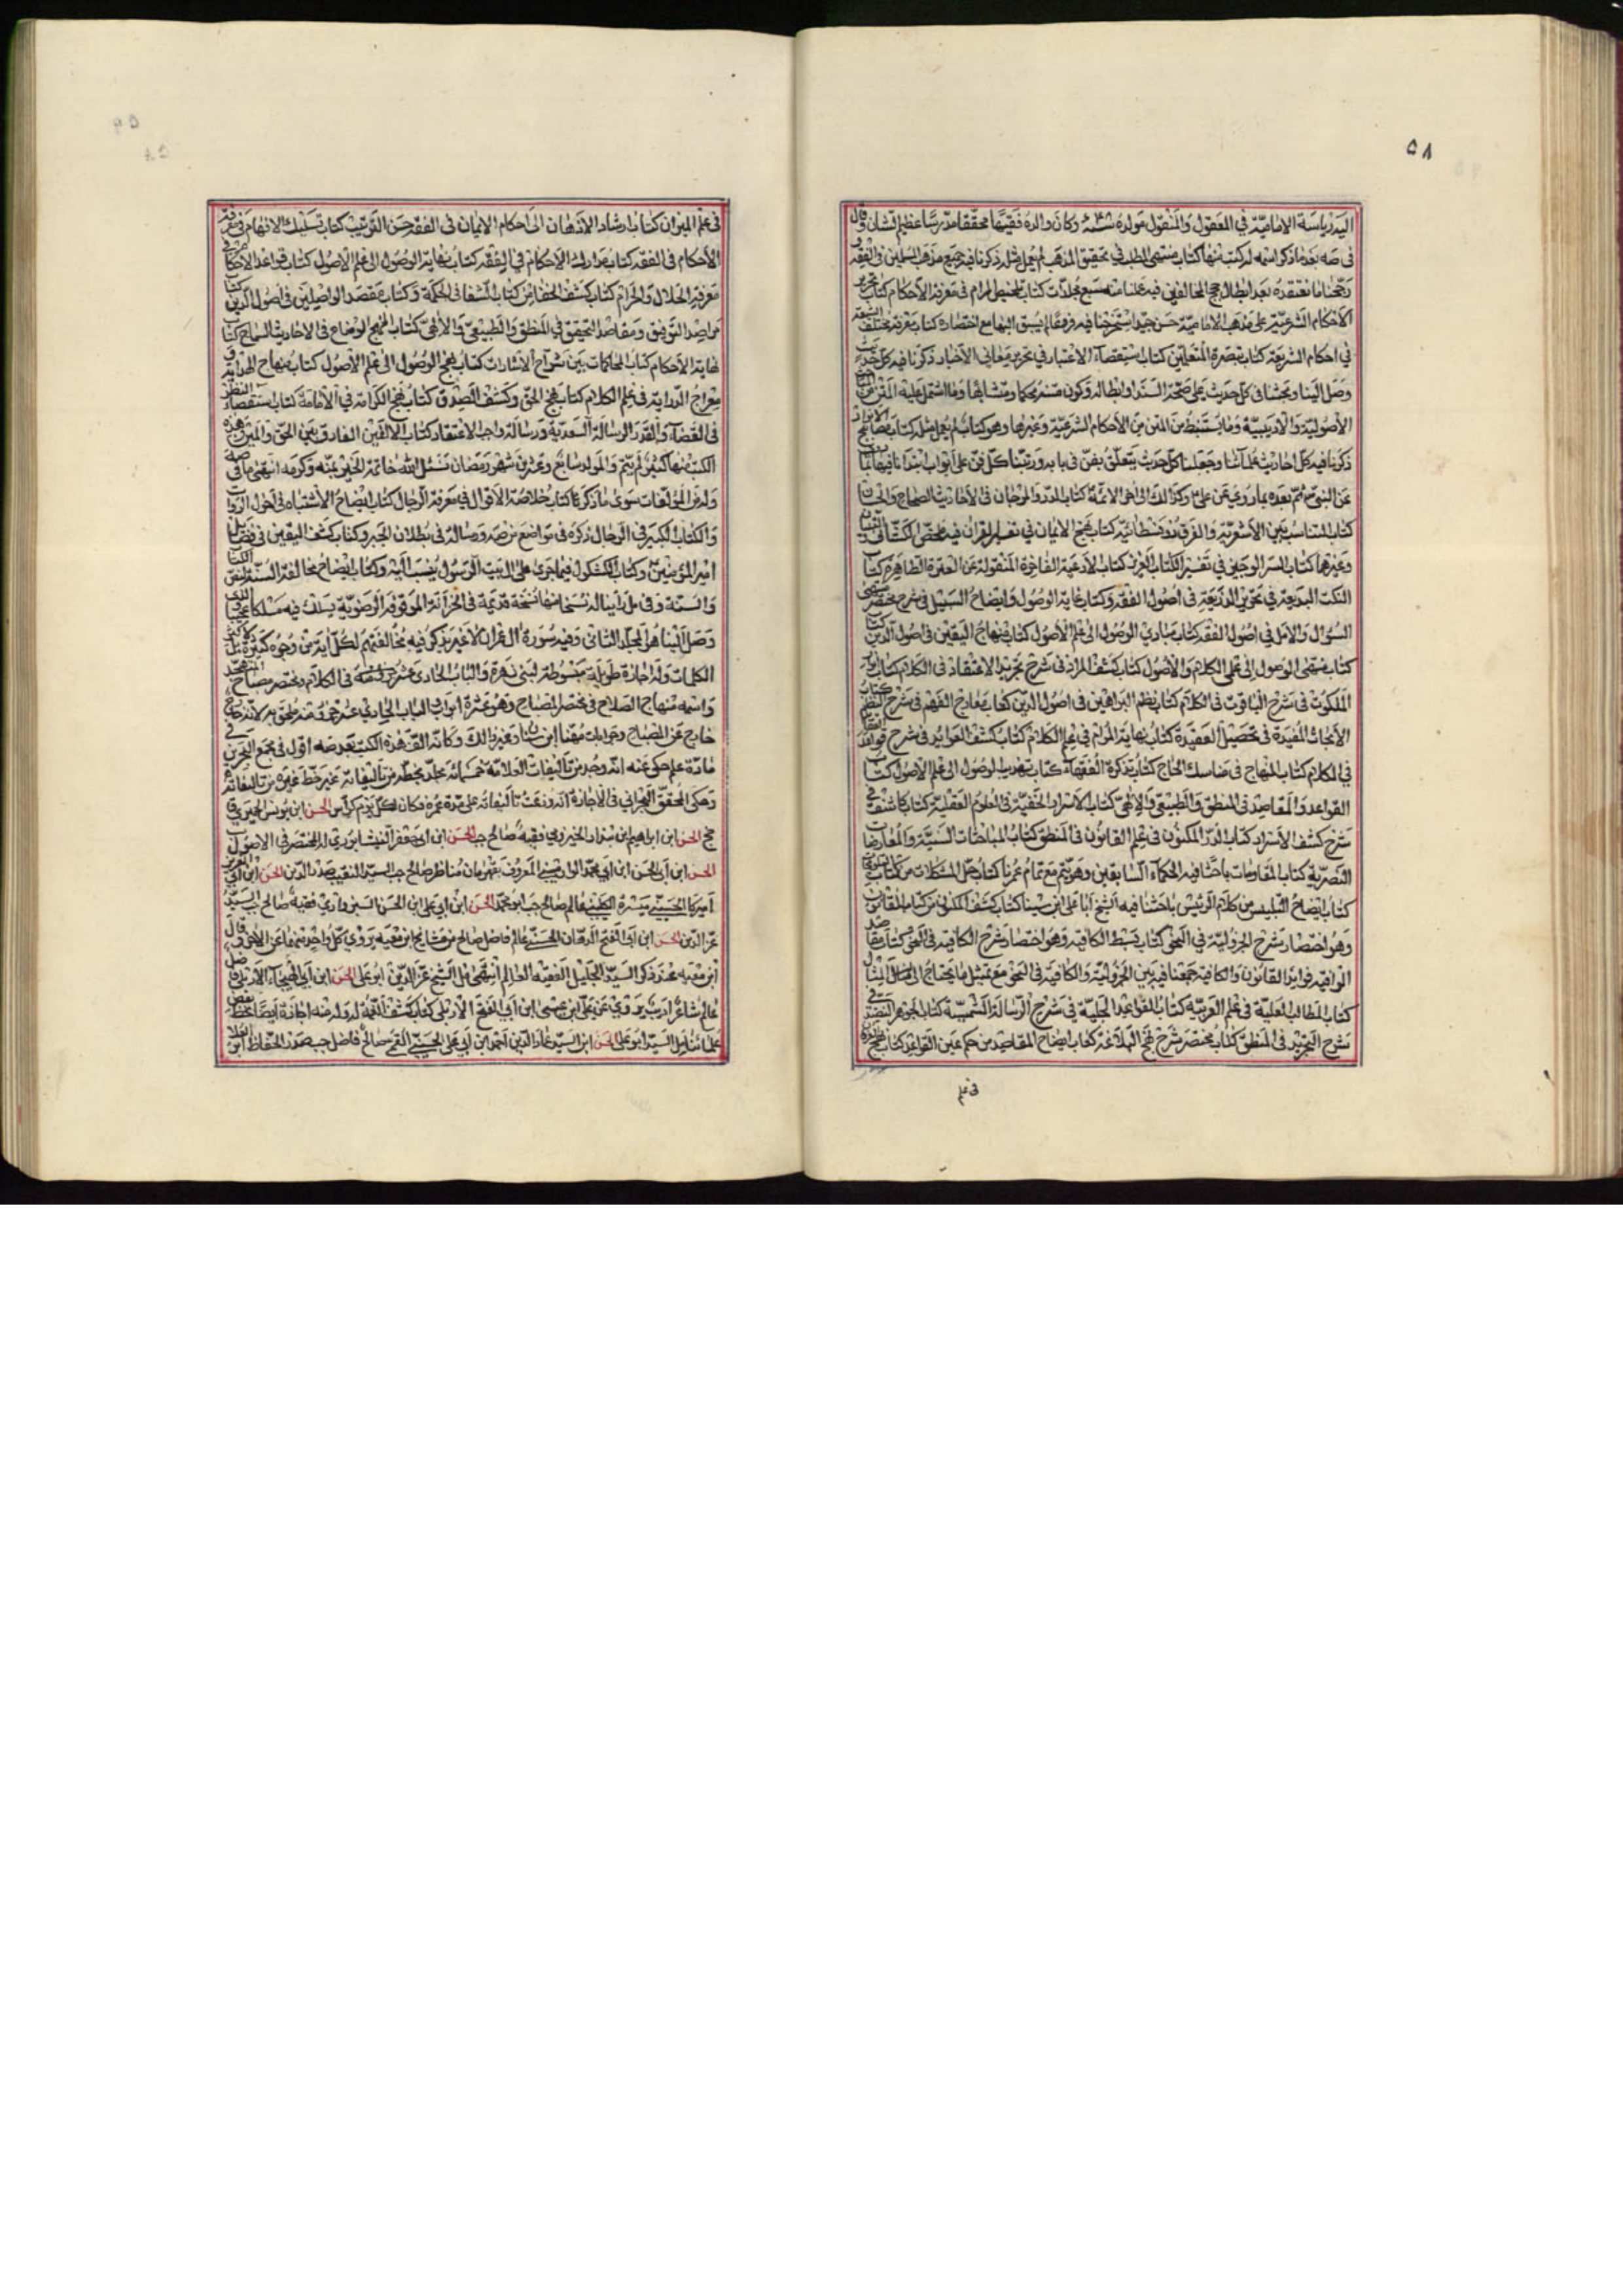 ٥٨
اليه رياسة الامامية في المعقول والمنقول مولده سنة وكان والده فقيها محققا مدرسا عظيم الشان وقال
في صه بعد ما ذكر اسمه له كتب منها كتاب منتهى المطلب في تحقيق المذهب لم يعمل مثله ذكرنا فيه جميع مذهب المسلمين في الفقه
ورجحنا ما نعتقده بعد ابطال حجج المخالفين فيه عملنا منه سبع مجلدات كتاب تلخيص المرام في معرفة الاحكام كتاب تحرير
الاحكام الشرعية على مذهب الامامية حسن جيد استخرجنا فيه فروعا لم يسبق اليها مع اختصاره كتاب مختلف الشيعة
في احكام الشريعة كتاب تبصرة المتعلمين كتاب استقصاء الاعتبار في تحرير معاني الاخبار ذكرنا فيه كل حديث
وصل الينا وبحثنا في كل حديث على صحة السند وابطاله وكون متنه محكما ومتشابها وما اشتمل عليه المتن من
الاصولية والادبيّة وما يستنبط من المتن من الاحكام الشرعية وغيرها وهو كتاب لم يعمل مثله كتاب مصابيح الانوار
ذكرنا فيه كل احاديث علمائنا وجعلنا كل حديث يتعلق بفن في بابه ورتبنا كل فن على ابواب ابتدانا فيها بما
عن النبي ثم بعده بما روي عن علي وكذلك الى اخر الائمة كتاب الدر والمرجان في الاحاديث الصحاح والحسان
كتاب التناسب بين الاشعرية والفرق السوفسطائية كتاب نهج الايمان في تفسير القران فيه ملخص الكشاف والتبيان
وغيرها كتاب السر الوجيز في تفسير الكتاب العزيز كتاب الادعية الفاخرة المنقولة عن العترة الطاهرة كتاب
النكت البديعة في تحرير الذريعة في اصول الفقه وكتاب غاية الوصول وايضاح السبيل في شرح مختصر منتهى
السؤل والامل في اصول الفقه كتاب مبادي الوصول الى علم الاصول كتاب منهاج اليقين في اصول الدين
كتاب منتهى الوصول الى علمي الكلام والاصول كتاب كشف المراد في شرح تجريد الاعتقاد في الكلام كتاب انوار
الملكوت في شرح الياقوت في الكلام كتاب نظم البراهين في اصول الدين كتاب معارج الفهم في شرح النظم كتاب
الابحاث المفيدة في تحصيل العقيدة كتاب نهاية المرام في علم الكلام كتاب كشف الفوايد في شرح قواعد العقائد
في الكلام كتاب المنهاج في مناسك الحاج كتاب تذكرة الفقهاء كتاب تهذيب الوصول الى علم الاصول كتاب
القواعد والمقاصد في المنطق والطبيعي والالهي كتاب الاسرار الخفية في العلوم العقلية كتاب كاشف في
شرح كشف الاسرار كتاب الدر المكنون في علم القانون في المنطق كتاب المباحثات السنية والمعارضات
النصرية كتاب المقاومات باحثنا فيه الحكماء السابقين وهو يتم مع تمام عمرنا كتاب حل المشكلات من كتاب
كتاب ايضاح التلبيس من كلام الرئيس باحثنا فيه الشيخ ابا علي ابن سينا كتاب كشف المكنون من كتاب القانون
وهو اختصار شرح الجزولية في النحو كتاب بسط الكافية وهو اختصار شرح الكافية في النحو كتاب مقاصد
الوافية فوايد القانون والكافية جمعنا فيه بين الجزولية والكافية في النحو مع تمثيل ما يحتاج الى المثال
كتاب المطالب العلية في علم العربية كتاب القواعد الجلية في شرح الرسالة الشمسية كتاب الجوهر النضيد في
شرح التجريد في المنطق كتاب مختصر شرح نهج البلاغة كتاب ايضاح المقاصد من حكمة عين القواعد كتاب نهج
في علم
في علم الميزان كتاب ارشاد الاذهان الى احكام الايمان في الفقه حسن الترتيب كتاب تسليك الافهام في معرفة
الاحكام في الفقه كتاب مدارك الاحكام في الفقه كتاب نهاية الوصول الى علم الاصول كتاب قواعد الاحكام في
معرفة الحلال والحرام كتاب كشف الخفا من كتاب الشفا في الحكمة وكتاب مقصد الواصلين في اصول الدين
مراصد التوفيق ومقاصد التحقيق في المنطق والطبيعي والالهي كتاب النهج الوضاح في الاحاديث الصحاح كتاب
نهاية الاحكام كتاب المحاكمات بين شراح الاشارات كتاب نهج الوصول الى علم الاصول كتاب منهاج الهداية و
معراج الدراية في علم الكلام كتاب نهج الحق وكشف الصدق كتاب نهج الكرامة في الامامة كتاب استقصاء النظر
في القضاء والقدر الرسالة السعدية ورسالة واجب الاعتقاد كتاب الالفين الفارق بين الحق والمين وهذه
الكتب منها كثير لم يتم والمولد سابع وعشرين شهر رمضان نسئل الله خاتمة الخير بمنه وكرمه انتهى ما في صه
وله من المؤلفات سوى ما ذكر كتاب خلاصة الاقوال في معرفة الرجال كتاب ايضاح الاشتباه في احوال الرواة
والكتاب الكبير في الرجال ذكره في مواضع من صه ورسالة في بطلان الجبر وكتاب كشف اليقين في فضائل
امير المؤمنين وكتاب الكشكول فيما جرى على ال بيت الرسول ينسب اليه وكتاب ايضاح مخالفة السنة لنص الكتاب
والسنة وقد راينا له نسخا منها نسخة قديمة في الخزانة الموقوفة الرضوية يسلك فيه مسلكا عجيبا
وصل الينا هو المجلد الثاني وفيه سورة ال عمران لا غير يذكر فيه مخالفتهم لكل اية من وجوه كثيرة بل لاكثر
الكلمات وله اجازة طويلة مبسوطة لبني زهرة والباب الحادي عشر في الكلام ومختصر مصباح المتهجد
واسمه منهاج الصلاح في مختصر المصباح وهو عشرة ابواب الباب الحادي عشر ملحق به لانه
خارج عن المصباح وجوابات مهنا ابن سنان وغير ذلك وكانه الف هذه الكتب بعد صه اقول في مجمع البحرين في
مادة علم حكى عنه انه وجد من تاليفات العلامة خمسمائة مجلد بخطه من تاليفاته غير خط غيره من تاليفاته
وحكى المحقق البحراني في الاجازة انه وزعت تاليفاته على مدة عمره فكان لكل يوم كراس الحسن ابن يونس الحميري ق
جج الحسن ابن ابراهيم ابن بندار الخيروي فقيه صالح جب الحسن ابن ابي جعفر النيشابوري له المختصر في الاصول
الحسن ابن ابي الحسن ابن ابي محمد الوراميني المعروف بقهرمان مناظر صالح جب السيد النقيب صدر الدين الحسن ابن ابي العزيز
اميركا الحسيني عالم صالح جب ابو محمد الحسن ابن ابي علي ابن الحسن السبزواري فقيه صالح جب السيد
عز الدين الحسن ابن ابي الفتح الدهان الحسني عالم فاضل صالح من مشايخ ابن معية يروي كل واحد منهما عن الاخر قال
ابن معية عند ذكر السيد الجليل الفقيه العالم انتهى مل الشيخ عز الدين ابو علي الحسن ابن ابي الهيجاء الاربلي فاضل
عالم شاعر اديب يروي عن علي ابن عيسى ابن ابي الفتح الاربلي كتاب كشف الغمة له وله منه اجازة
علمائنا مل السيد ابو علي الحسن ابن السيد عماد الدين احمد ابن ابي علي الحسيني القمي صالح فاضل جب صدر الحفاظ ابو العلاء